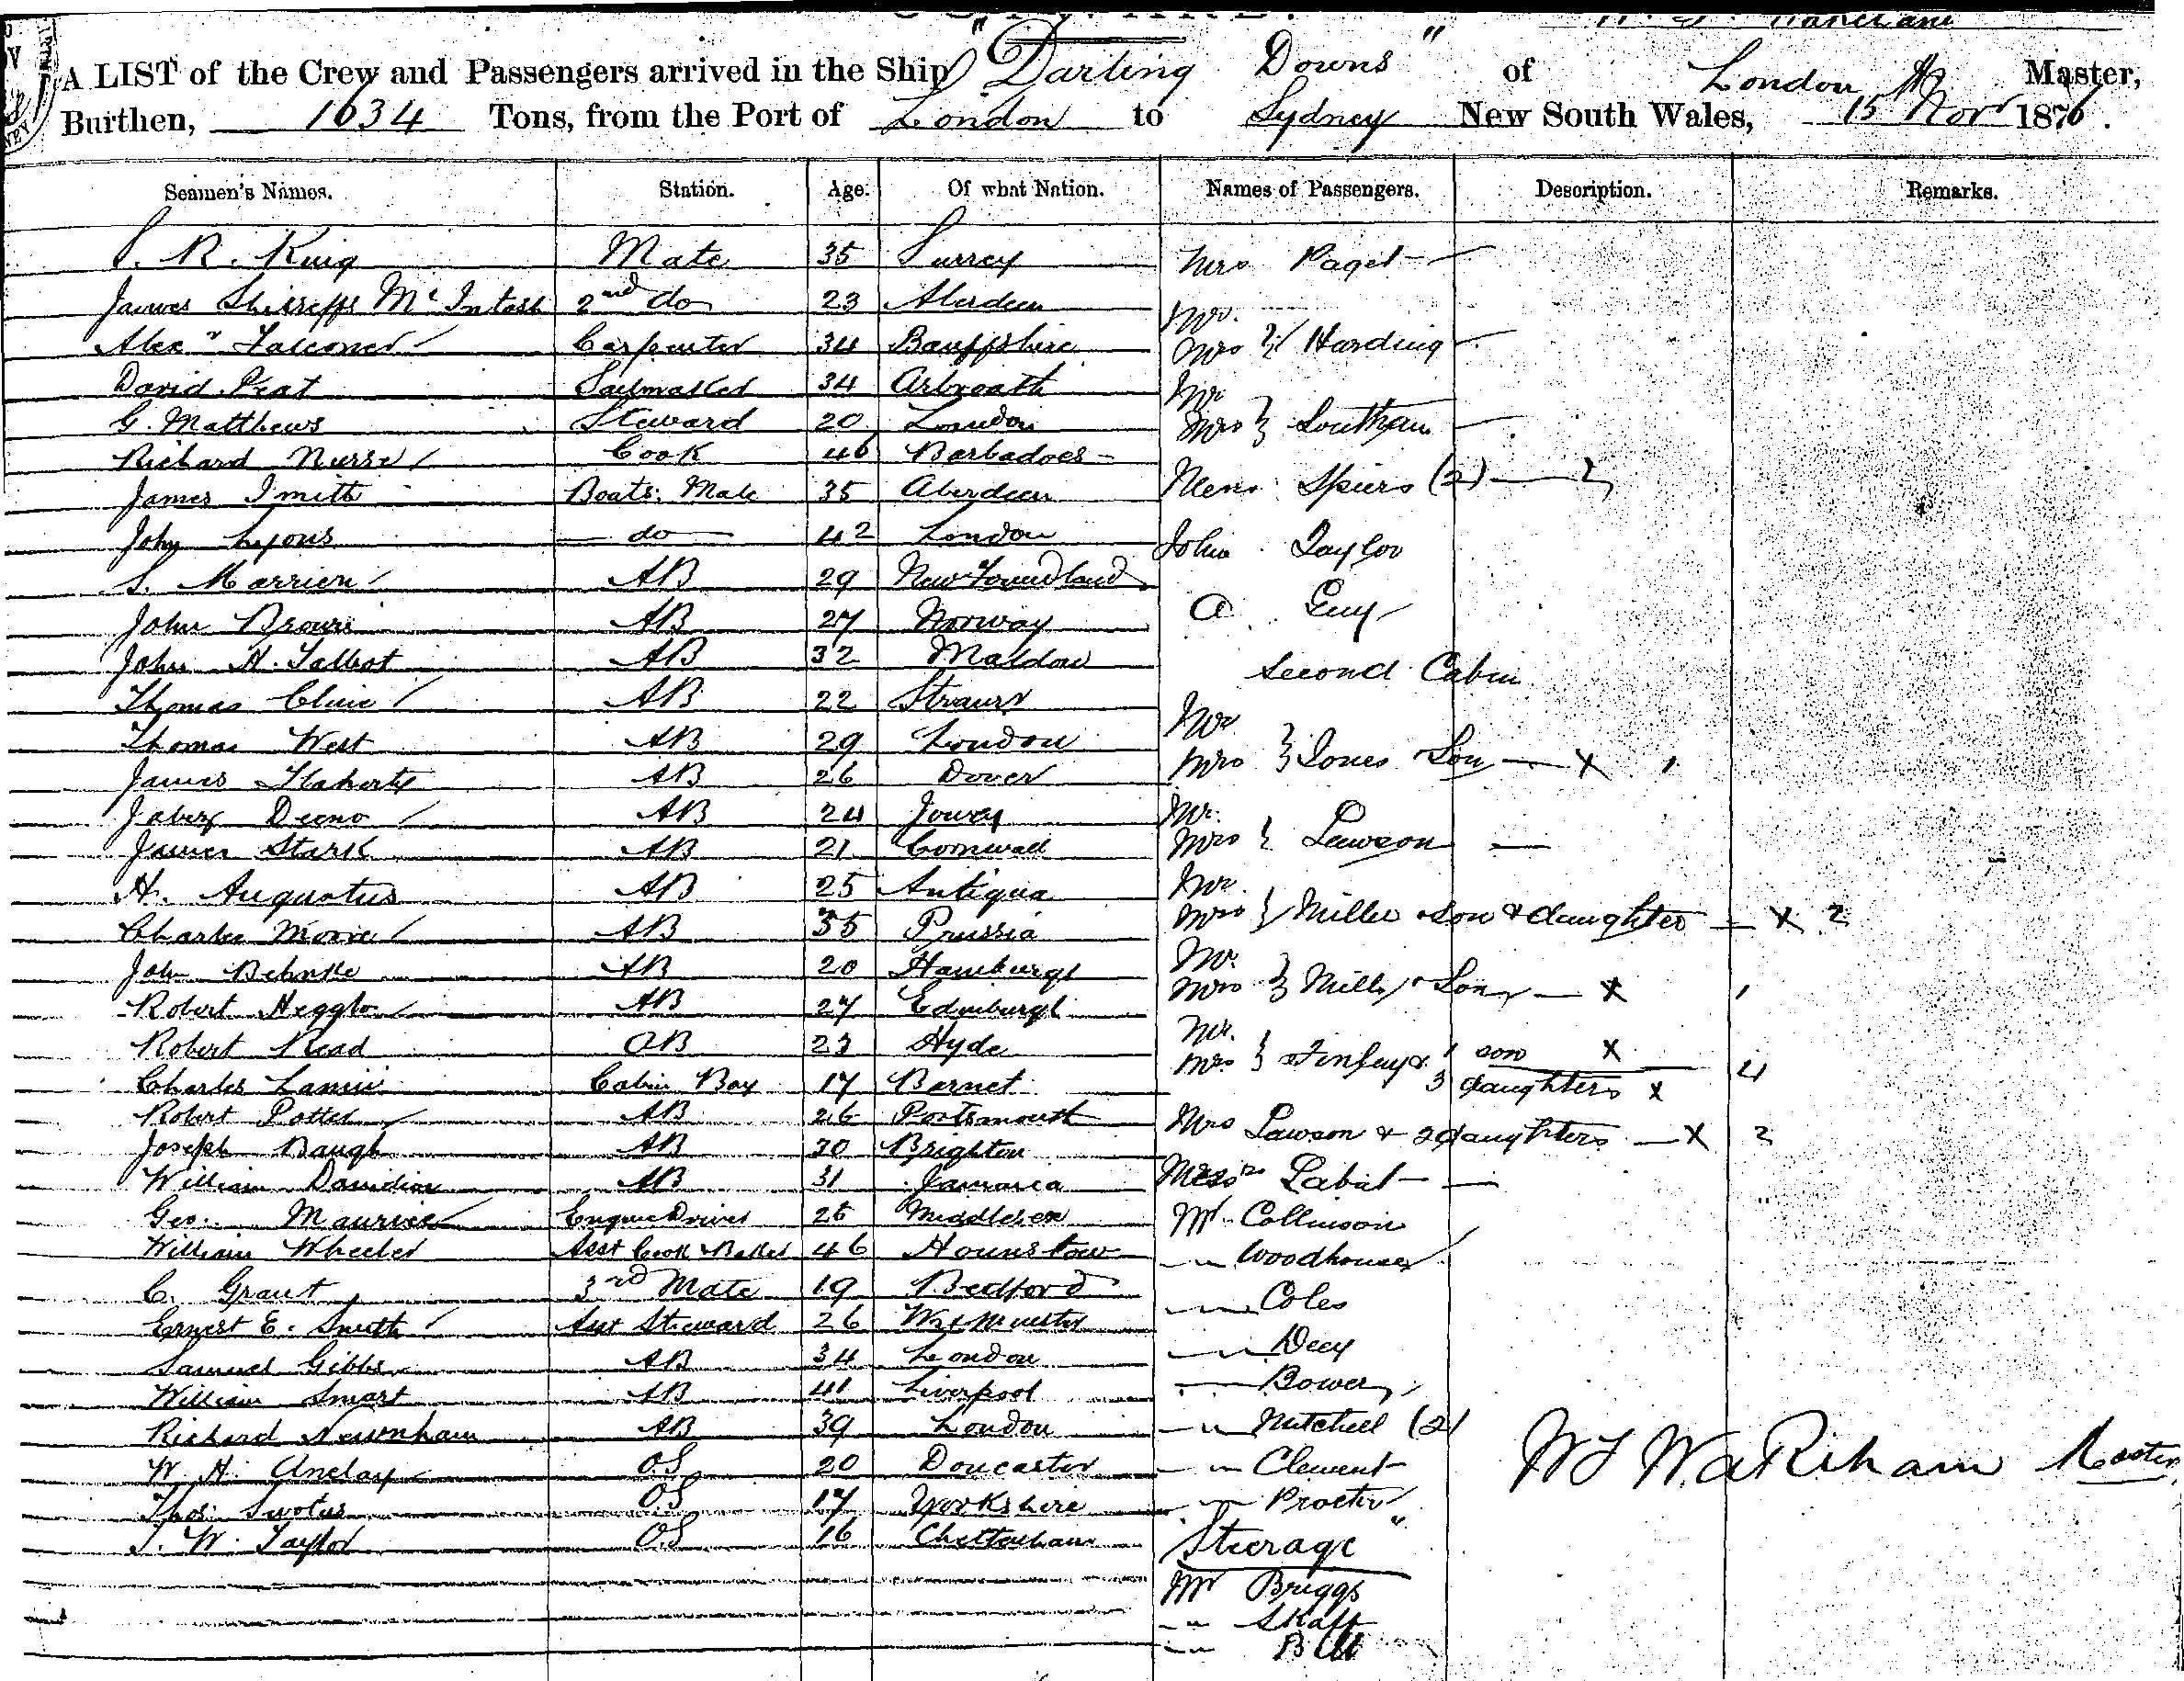 A LIST of the Crew and Passengers arrived in the Ship "Darling Downs" of London Master,
Burthen, 1634 Tons, from the Port of London to Sydney New South Wales, 15 Nov 1876.
Seamen's Names. Station. Age. Of what Nation. Names of Passengers. Description. Remarks.
S. R. King Mate 35 Surrey Mrs Paget
James Shirreffs McIntosh 2nd do 23 Aberdeen Mr.
Alexr Falconer Carpenter 34 Banffshire Mrs } Harding
David Peat Sailmaker 34 Arbroath Mr
G. Matthews Steward 20 London Mrs } Southam
Richard Nurse Cook 46 Barbadoes
James Smith Boats. Mate 35 Aberdeen Spiers (2) 2
John Lyons do 42 London John Taylor
S. Marrien AB 29 Newfoundland
John Brown AB 27 Norway A Guy
John H. Talbot AB 32 Maldon Second Cabin
Thomas Cline AB 22
Thomas West AB 29 London Mr
James Flaherty AB 26 Dover Mrs } Jones Son X 1
Jabez Deeno AB 24 Mr.
James Stark AB 21 Cornwall Mrs } Lawson
H. Augustus AB 25 Antigua Mr.
Charles Moore AB 35 Prussia Mrs } Miller Son & daughter X 2
John Behnke AB 20 Hamburgh Mr.
Robert Heggto AB 27 Edinburgh Mrs } Mills Son X 1
Robert Read OB 23 Hyde Mr.
Mrs } Finlay & 1 son X
Charles Cabin Boy 17 Barnet 3 daughters X 4
Robert Potter AB 26 Portsmouth
Joseph Baugh AB 30 Brighton Mrs Lawson & 2 daughters X 2
William Davidson AB 31 Jamaica Messrs Labat
Geo. Maurice Engine Driver 25 Middlesex Mr Collinson
William Wheeler Asst Cook & Baker 46 Hounslow " Woodhouse
C. Grant 3rd Mate 19 Bedford " Coles
Ernest E. Smith Asst Steward 26 Westminster
Samuel Gibbs AB 34 London " Deey
William Smart AB 41 Liverpool " Bower
Richard Newnham AB 39 London " Mitchell (2)
W. H. Anclay OS 20 Doncaster " Clement
Thos. OS 17 Yorkshire " Procter
T. W. Taylor OS 16 Cheltenham Steerage
Mr Briggs
" Skaff
" Bill
Wakeham Master